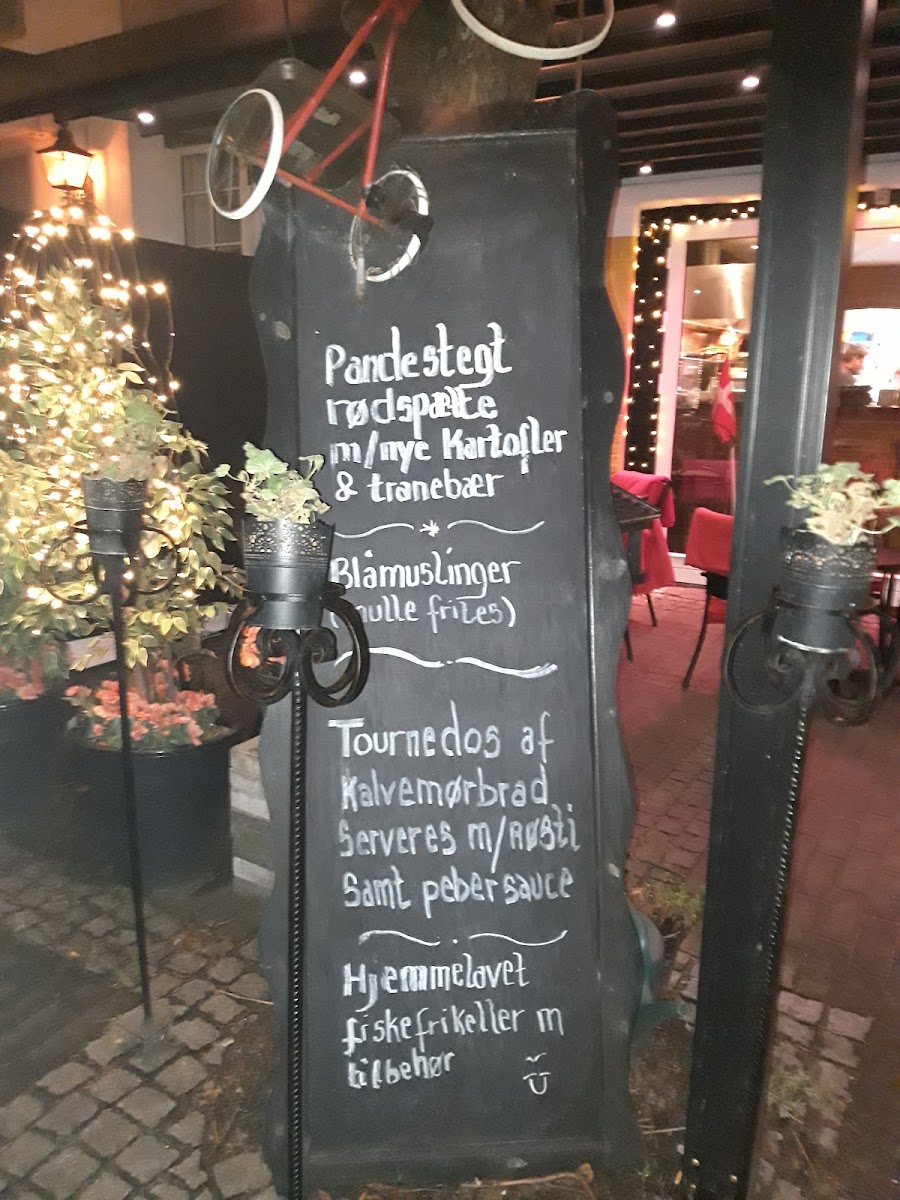 Pandestegt
rødspætte
m/nye Kartofler
& tranebær
Blåmuslinger
frites)
Tournedos af
Kalvemørbrad
Serveres m/Røsti
Samt pebersauce
Hjemmelavet
fiskefrikeller m
tilbehør